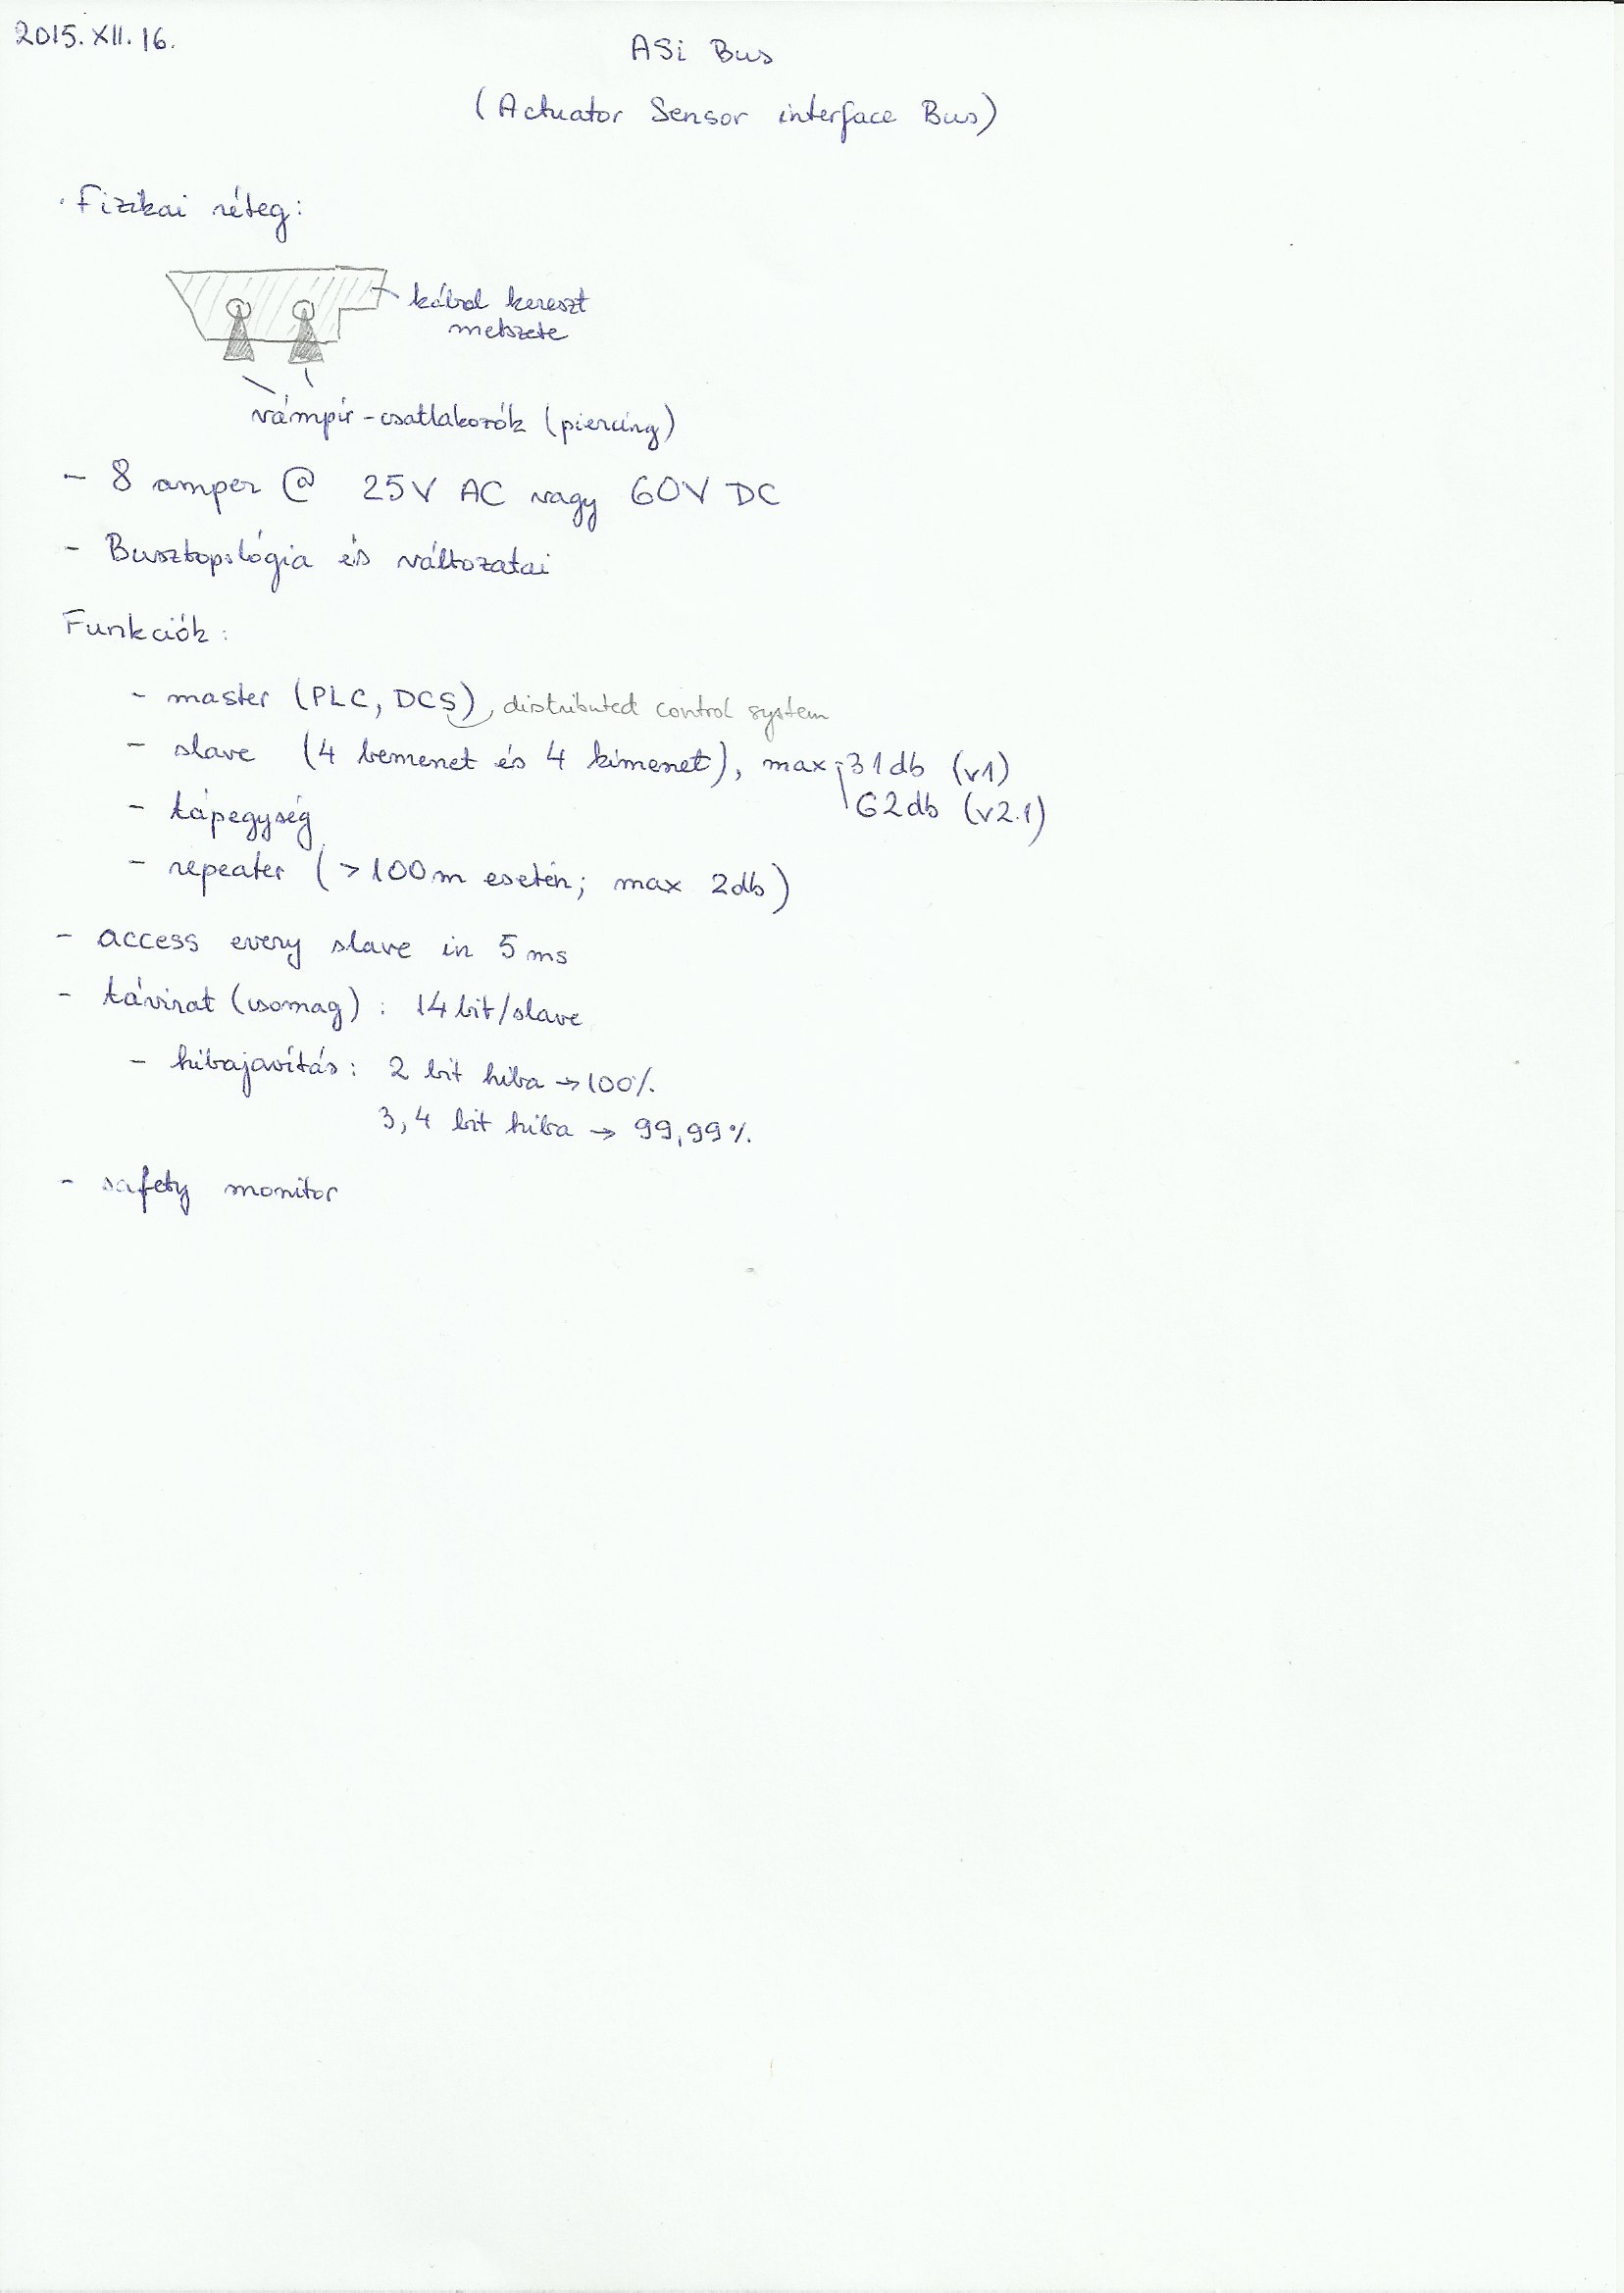 2015. XII. 16.
ASi Bus
(Actuator Sensor interface Bus)
· Fizikai réteg:
kábel kereszt
metszete
vámpír-csatlakozók (piercing)
- 8 amper @ 25V AC vagy 60V DC
- Busztopológia és változatai
Funkciók:
- master (PLC, DCS) distributed control system
- slave (4 bemenet és 4 kimenet), max 31db (v1)
62db (v2.1)
- tápegység
- repeater (>100m esetén; max 2db)
- access every slave in 5 ms
- távirat (csomag) : 14 bit/slave
- hibajavítás: 2 bit hiba → 100%
3,4 bit hiba → 99,99%
- safety monitor